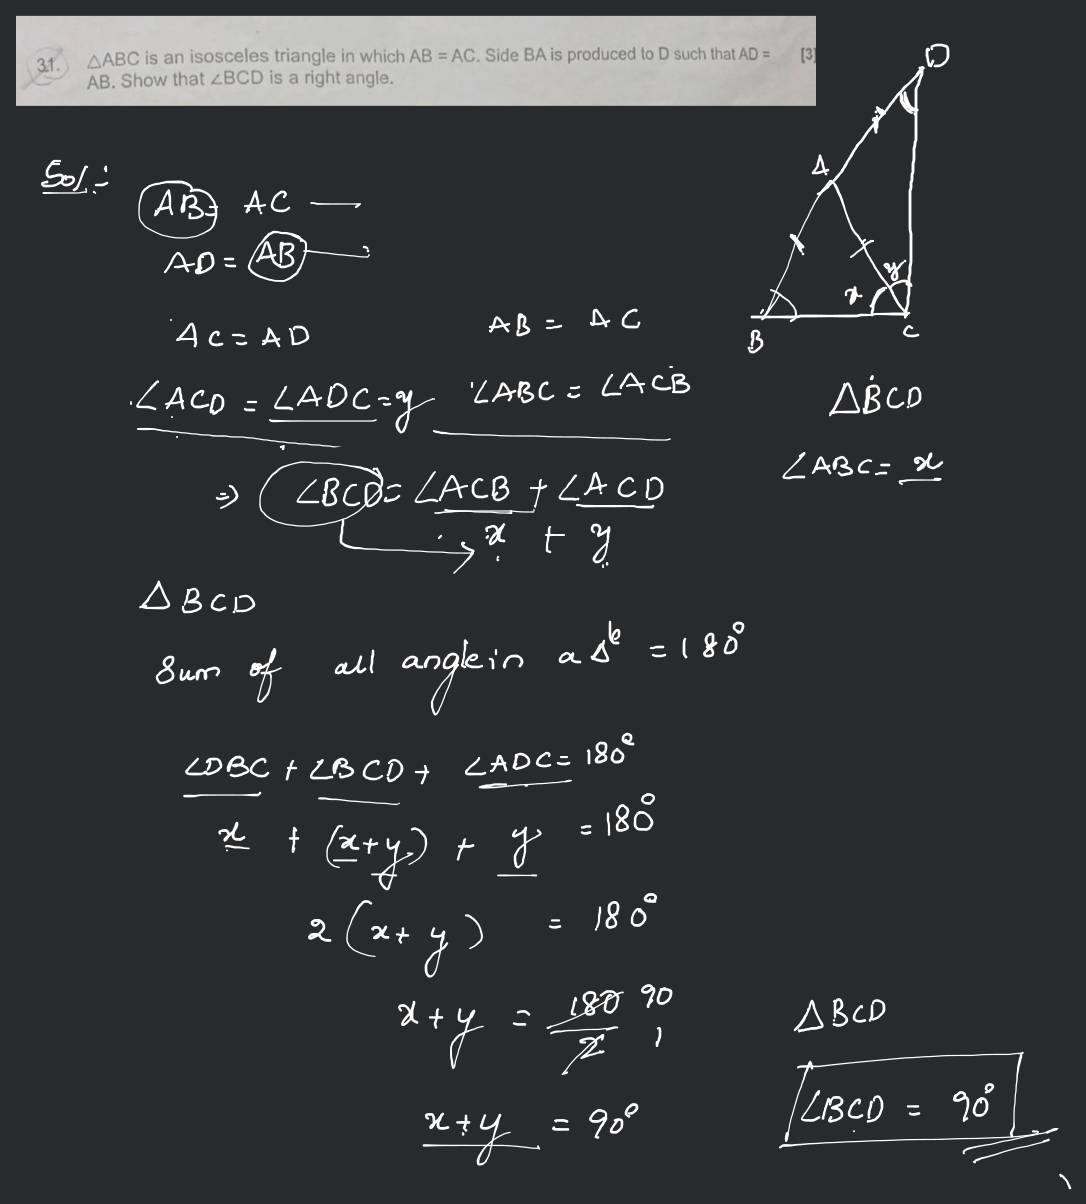 31. △ABC is an isosceles triangle in which AB = AC. Side BA is produced to D such that AD = [3]
AB. Show that ∠BCD is a right angle.
D
A
y
x
B
C
Sol:-
AB = AC
AD = AB
AC = AD
AB = AC
∠ACD = ∠ADC = y
∠ABC = ∠ACB
△BCD
∠ABC = x
⇒ ∠BCD = ∠ACB + ∠ACD
x + y
△BCD
Sum of all angle in a △le = 180°
∠DBC + ∠BCD + ∠ADC = 180°
x + (x+y) + y = 180°
2(x+y) = 180°
x+y = 180/2 90 1
x+y = 90°
△BCD
∠BCD = 90°